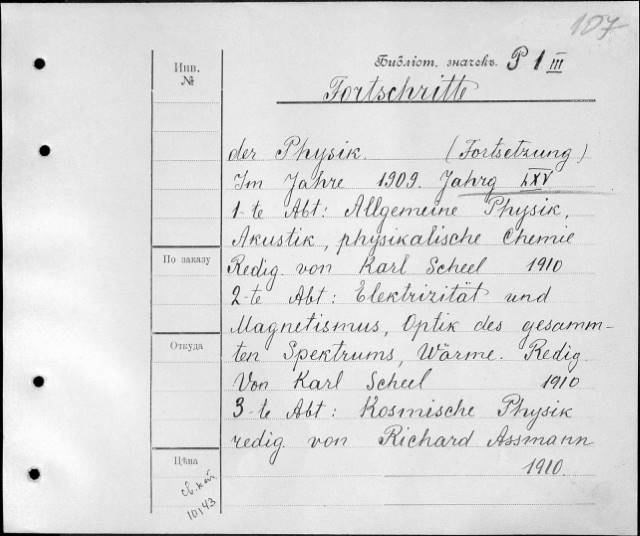 107
Инв.
№
Библіот. значекъ. P 1 III
Fortschritte
der Physik. (Fortsetzung)
Im Jahre 1909. Jahrg LXV
1-te Abt: Allgemeine Physik,
Akustik, physikalische Chemie
По заказу
Redig. von Karl Scheel 1910
2-te Abt: Elektrizität und
Magnetismus, Optik des gesamm-
Откуда
ten Spektrums, Wärme. Redig.
Von Karl Scheel 1910
3-te Abt: Kosmische Physik
redig. von Richard Assmann
Цѣна
1910.
10143